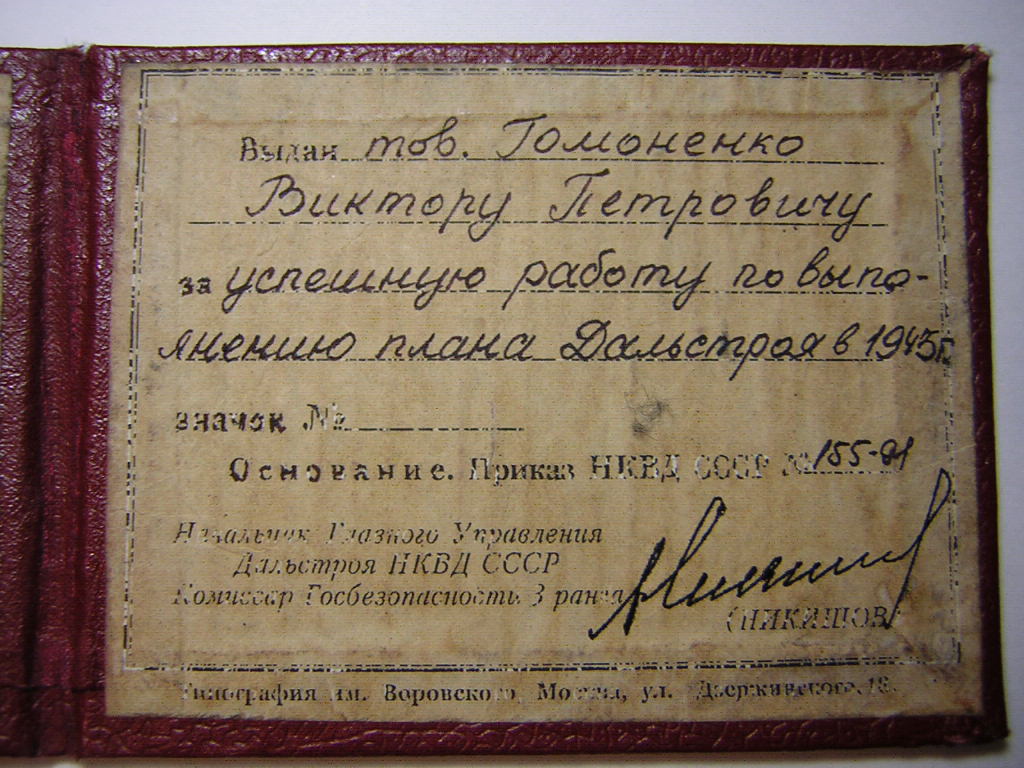 Выдан тов. Гомоненко
Виктору Петровичу
за успешную работу по выпо-
лнению плана Дальстроя в 1945г.
значок №
Основание. Приказ НКВД СССР № 155-91
Начальник Главного Управления
Дальстроя НКВД СССР
Комиссар Госбезопасности 3 ранга
(НИКИШОВ)
Типография им. Воровского, Москва, ул. Дзержинского, 18.